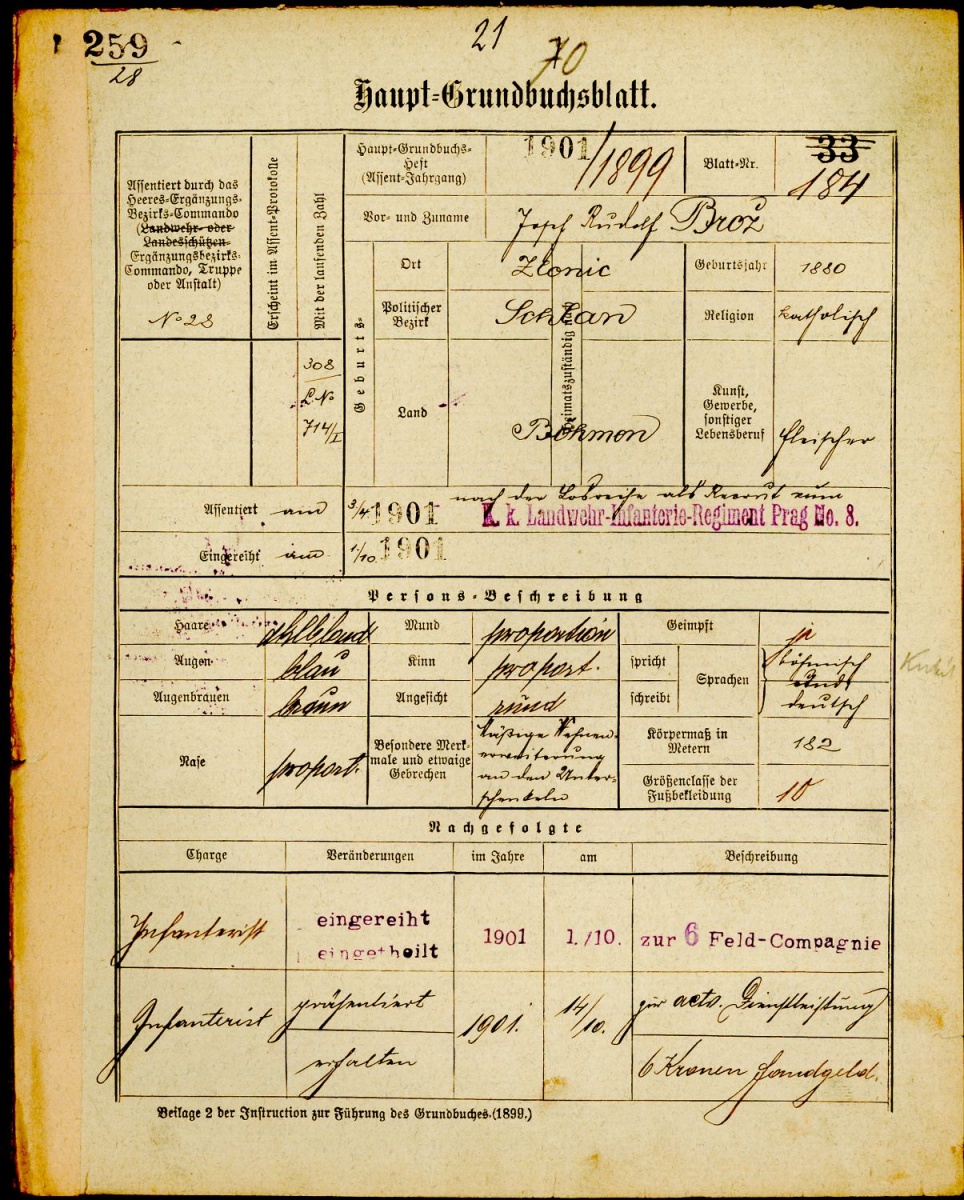 259
28
21
70
Haupt-Grundbuchsblatt.
Assentiert durch das
Heeres-Ergänzungs-
Bezirks-Commando
(Landwehr- oder
Landesschützen-
Ergänzungsbezirks-
Commando, Truppe
oder Anstalt)
No 28
Erscheint im Assent-Protokolle
Mit der laufenden Zahl
308
L. No
714/I
Haupt-Grundbuchs-
Heft
(Assent-Jahrgang)
1901/1899
Blatt-Nr.
33
184
Vor- und Zuname
Josef Rudolf Brož
Geburts-
Ort
Zlonic
Geburtsjahr
1880
Politischer
Bezirk
Schlan
Heimatszuständig nach
Religion
katholisch
Land
Böhmen
Kunst,
Gewerbe,
sonstiger
Lebensberuf
Fleischer
Assentiert am 3/4 1901
nach der Losreihe als Recrut zum
K. k. Landwehr-Infanterie-Regiment Prag No. 8.
Eingereiht am 1/10 1901
Persons-Beschreibung
Haare
Mund
proportion
Geimpft
ja
Augen
blau
Kinn
proport.
spricht
schreibt
Sprachen
böhmisch
und
deutsch
Augenbrauen
braun
Angesicht
rund
Nase
proport.
Besondere Merk-
male und etwaige
Gebrechen
Mäßige Venen-
erweiterung
an den Unter-
schenkeln
Körpermaß in
Metern
182
Größenclasse der
Fußbekleidung
10
Nachgefolgte
Charge
Veränderungen
im Jahre
am
Beschreibung
Infanterist
eingereiht
eingetheilt
1901
1./10.
zur 6 Feld-Compagnie
Infanterist
präsentiert
1901.
14/10.
zur actv. Dienstleistung
erhalten
6 Kronen Handgeld.
Beilage 2 der Instruction zur Führung des Grundbuches.(1899.)